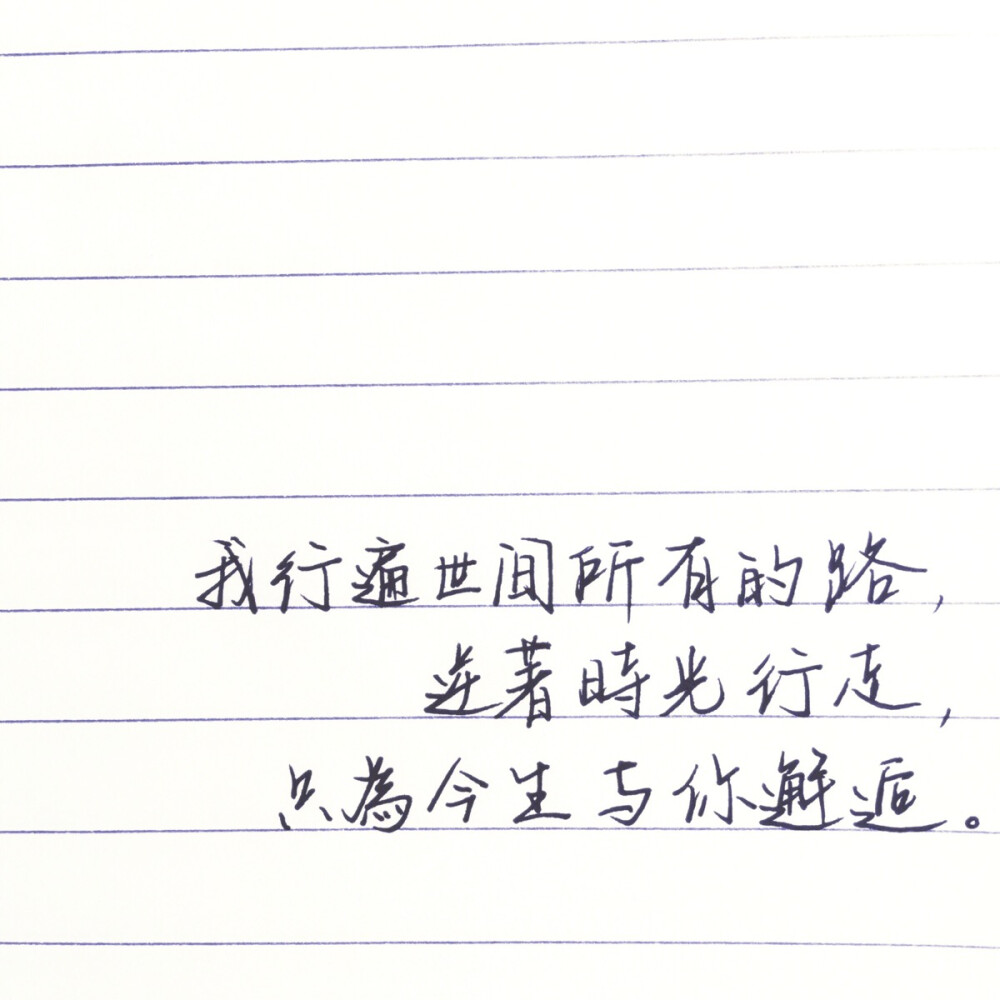 我行遍世间所有的路,
逆著時光行走,
只為今生与你邂逅。